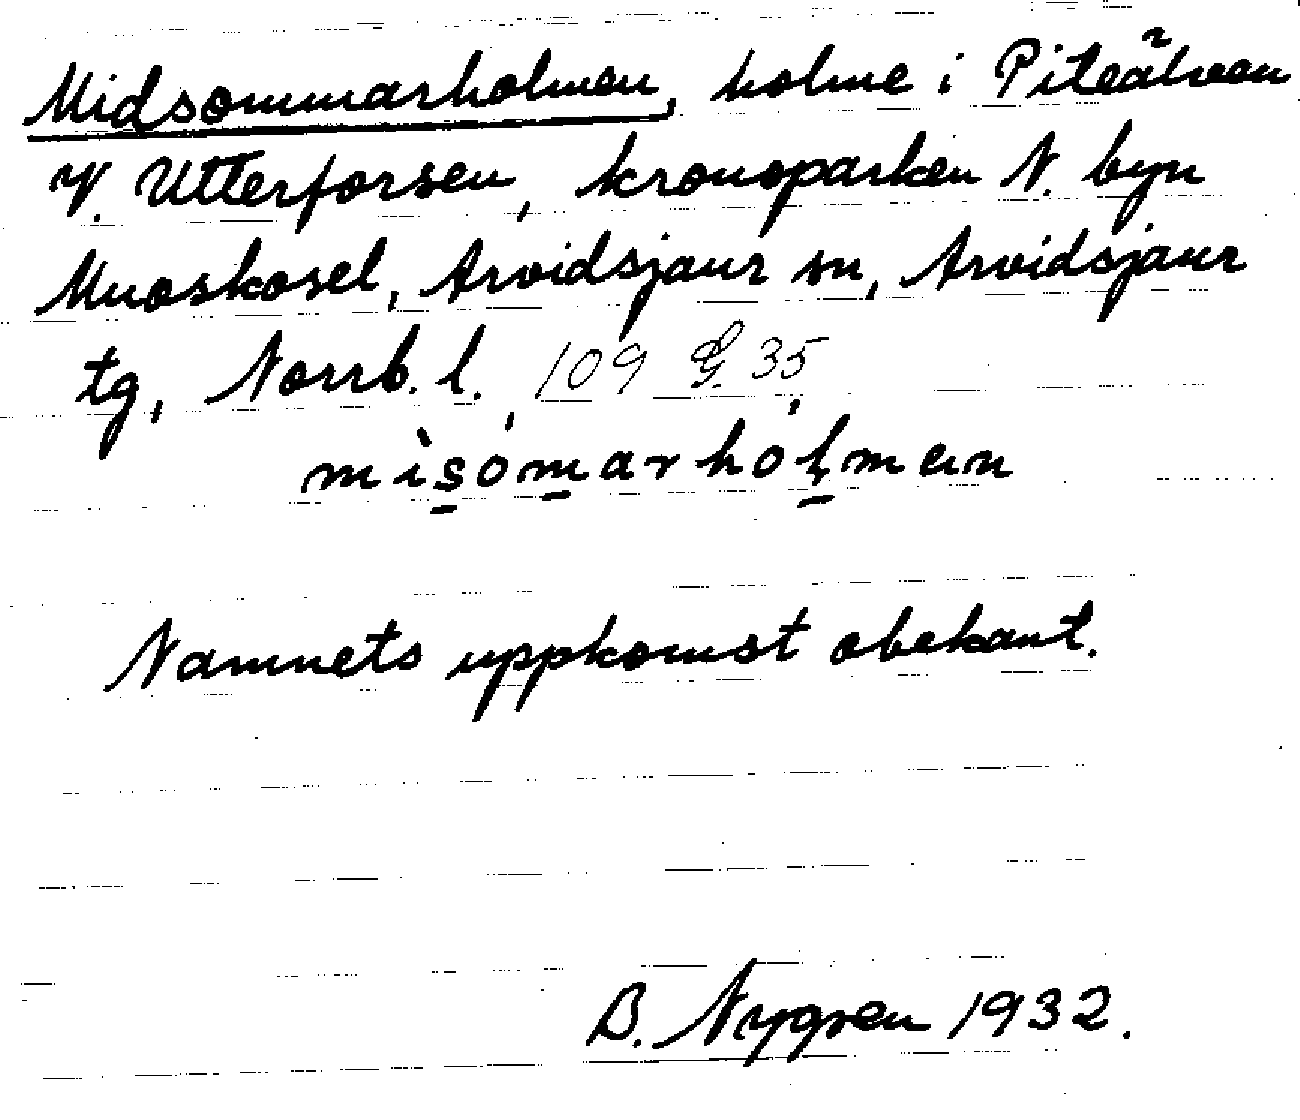 Midsommarholmen, holme i Piteälven
V. Utterforsen, kronoparken N. byn
Muoskosel, Arvidsjaur sn, Arvidsjaur
tg, Norrb. l. 109 G 35
mìsómarhólmen
Namnets uppkomst obekant.
B. Nygren 1932.